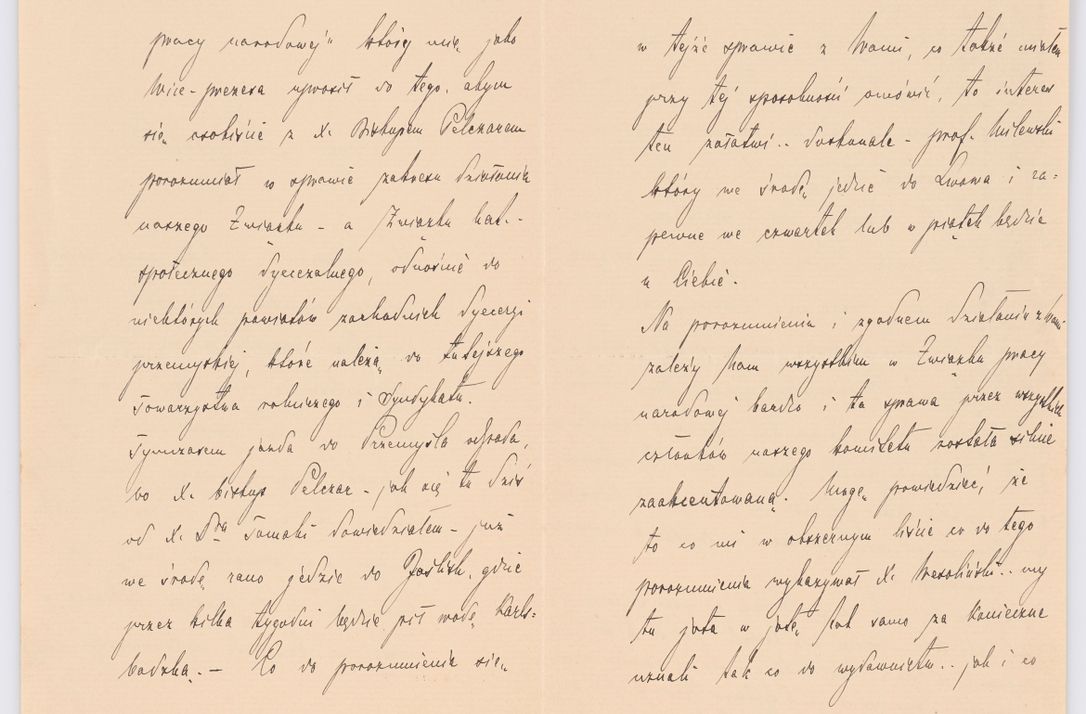 pracy narodowej" który mię jako
Wice-prezesa uprosił do tego, abym
się osobiście z X. Biskupem Pelczarem
porozumiał w sprawie zakresu działania
naszego Związku - a Związku kat.-
społecznego dyecezalnego, odnośnie do
niektórych powiatów zachodnich dyecezji
przemyskiej, które należą do tutejszego
Towarzystwa rolniczego i Syndykatu.
Tymczasem jazda do Przemyśla odpada,
bo X. biskup Pelczar - jak się tu dziś
od X. Dra dowiedziałem - już
we środę rano jedzie do gdzie
przez kilka tygodni będzie pił wodę Karls=
badzką. - Co do porozumienia się
w tejże sprawie z Wami, co także miałem
przy tej sposobności omówić, to interes
ten załatwi.. doskonale - prof. Milewski
który we środę jedzie do Lwowa i za=
pewne we czwartek lub w piątek będzie
u Ciebie.
Na porozumieniu i zgodnem działaniu z Wami
zależy Nam wszystkim w Związku pracy
narodowej bardzo i ta sprawa przez wszystkich
członków naszego komitetu została silnie
zaakcentowaną. Mogę powiedzieć, że
to co mi w obszernym liście co do tego
porozumienia wykazywał X. Wesoliński.. my
tu jota w jotę tak samo za konieczne
uznali tak co do wydawnictw.. jak i co